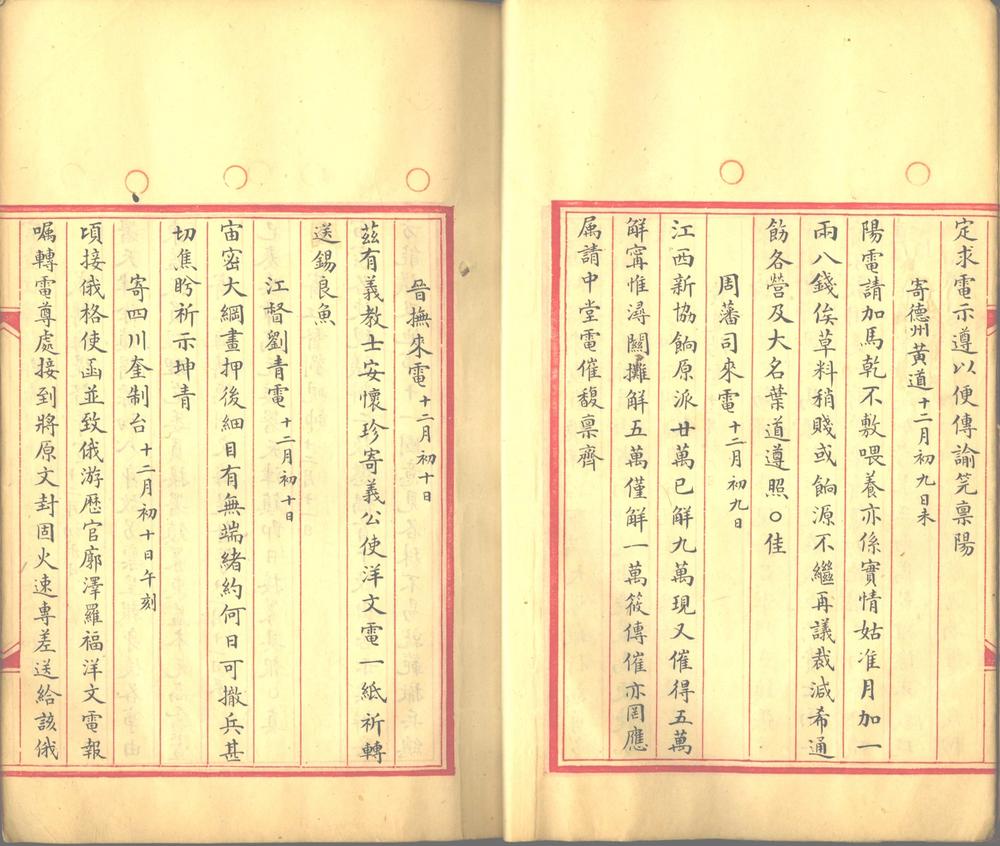 定求電示遵以便傳諭筦禀陽
寄德州黃道十二月初九日未
陽電請加馬乾不敷喂養亦係實情姑准月加一
兩八錢俟草料稍賤或餉源不繼再議裁減希通
飭各營及大名葉道遵照○佳
周藩司來電十二月初九日
江西新協餉原派廿萬已解九萬現又催得五萬
解寗惟潯關攤解五萬僅解一萬筱傳催亦罔應
属請中堂電催馥禀齊
晉撫來電十二月初十日
茲有義教士安懷珍寄義公使洋文電一紙祈轉
送錫良魚
江督劉青電十二月初十日
宙密大綱畫押後細目有無端緒約何日可撤兵甚
切焦盼祈示坤青
寄四川奎制台十二月初十日午刻
頃接俄格使函並致俄游歷官廓澤羅福洋文電報
嘱轉電尊處接到將原文封固火速專差送給該俄